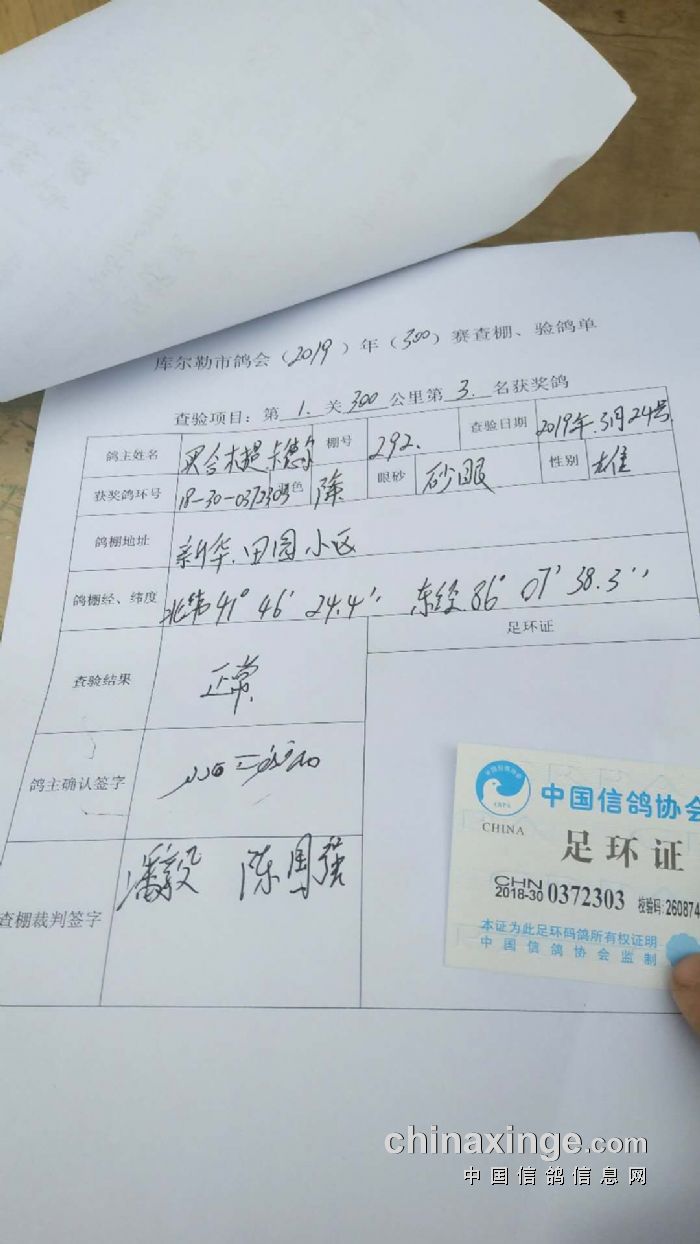 库尔勒市鸽会（2019）年（300）赛查棚、验鸽单
查验项目：第 1. 关 300 公里第 3. 名获奖鸽
鸽主姓名 买合木提.卡德尔 棚号 292. 查验日期 2019年.3月24号
获奖鸽环号 18-30-0372303 色 眼砂 砂眼 性别 雄
鸽棚地址 新华.田园小区
鸽棚经、纬度 北纬41° 46′ 24.4′′ 东经.86° 07′ 38.3′′
查验结果 正常 足环证
鸽主确认签字
查棚裁判签字 潘毅 陈国强
中国信鸽协会
CHINA
足环证
CHN
2018-30 0372303 校验码:260874
本证为此足环码鸽所有权证明
中国信鸽协会监制
chinaxinge.com
中国信鸽信息网